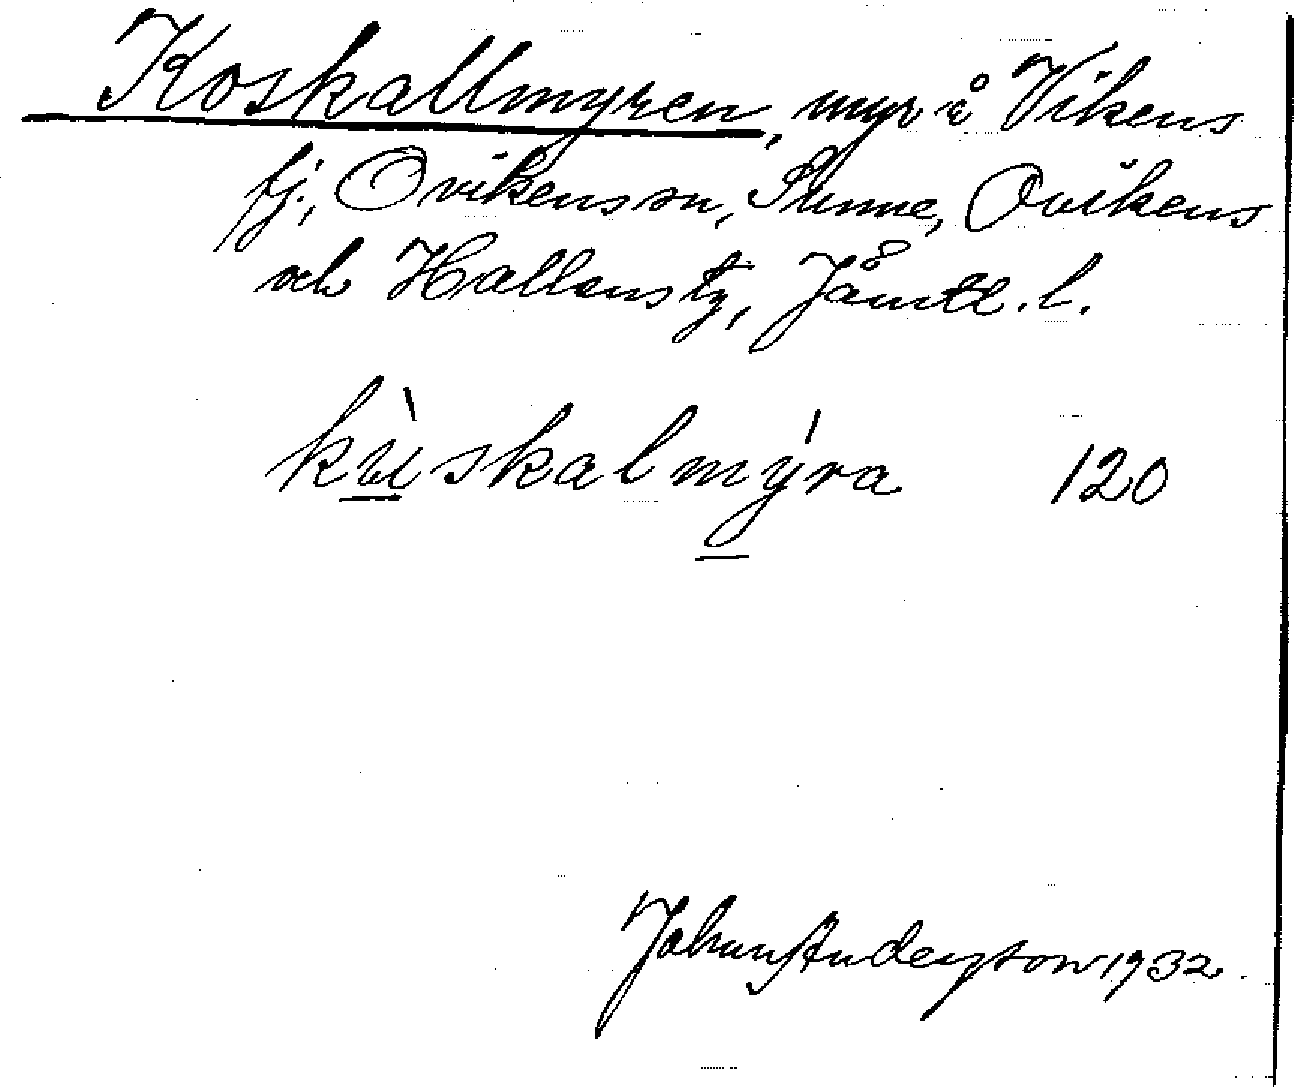 Koskallmyren, myr å Vikens
fj., Ovikens sn, Sunne, Ovikens
och Hallens tg, Jämtl. l.
kùskalmýra 120
Johan Anderson 1932.